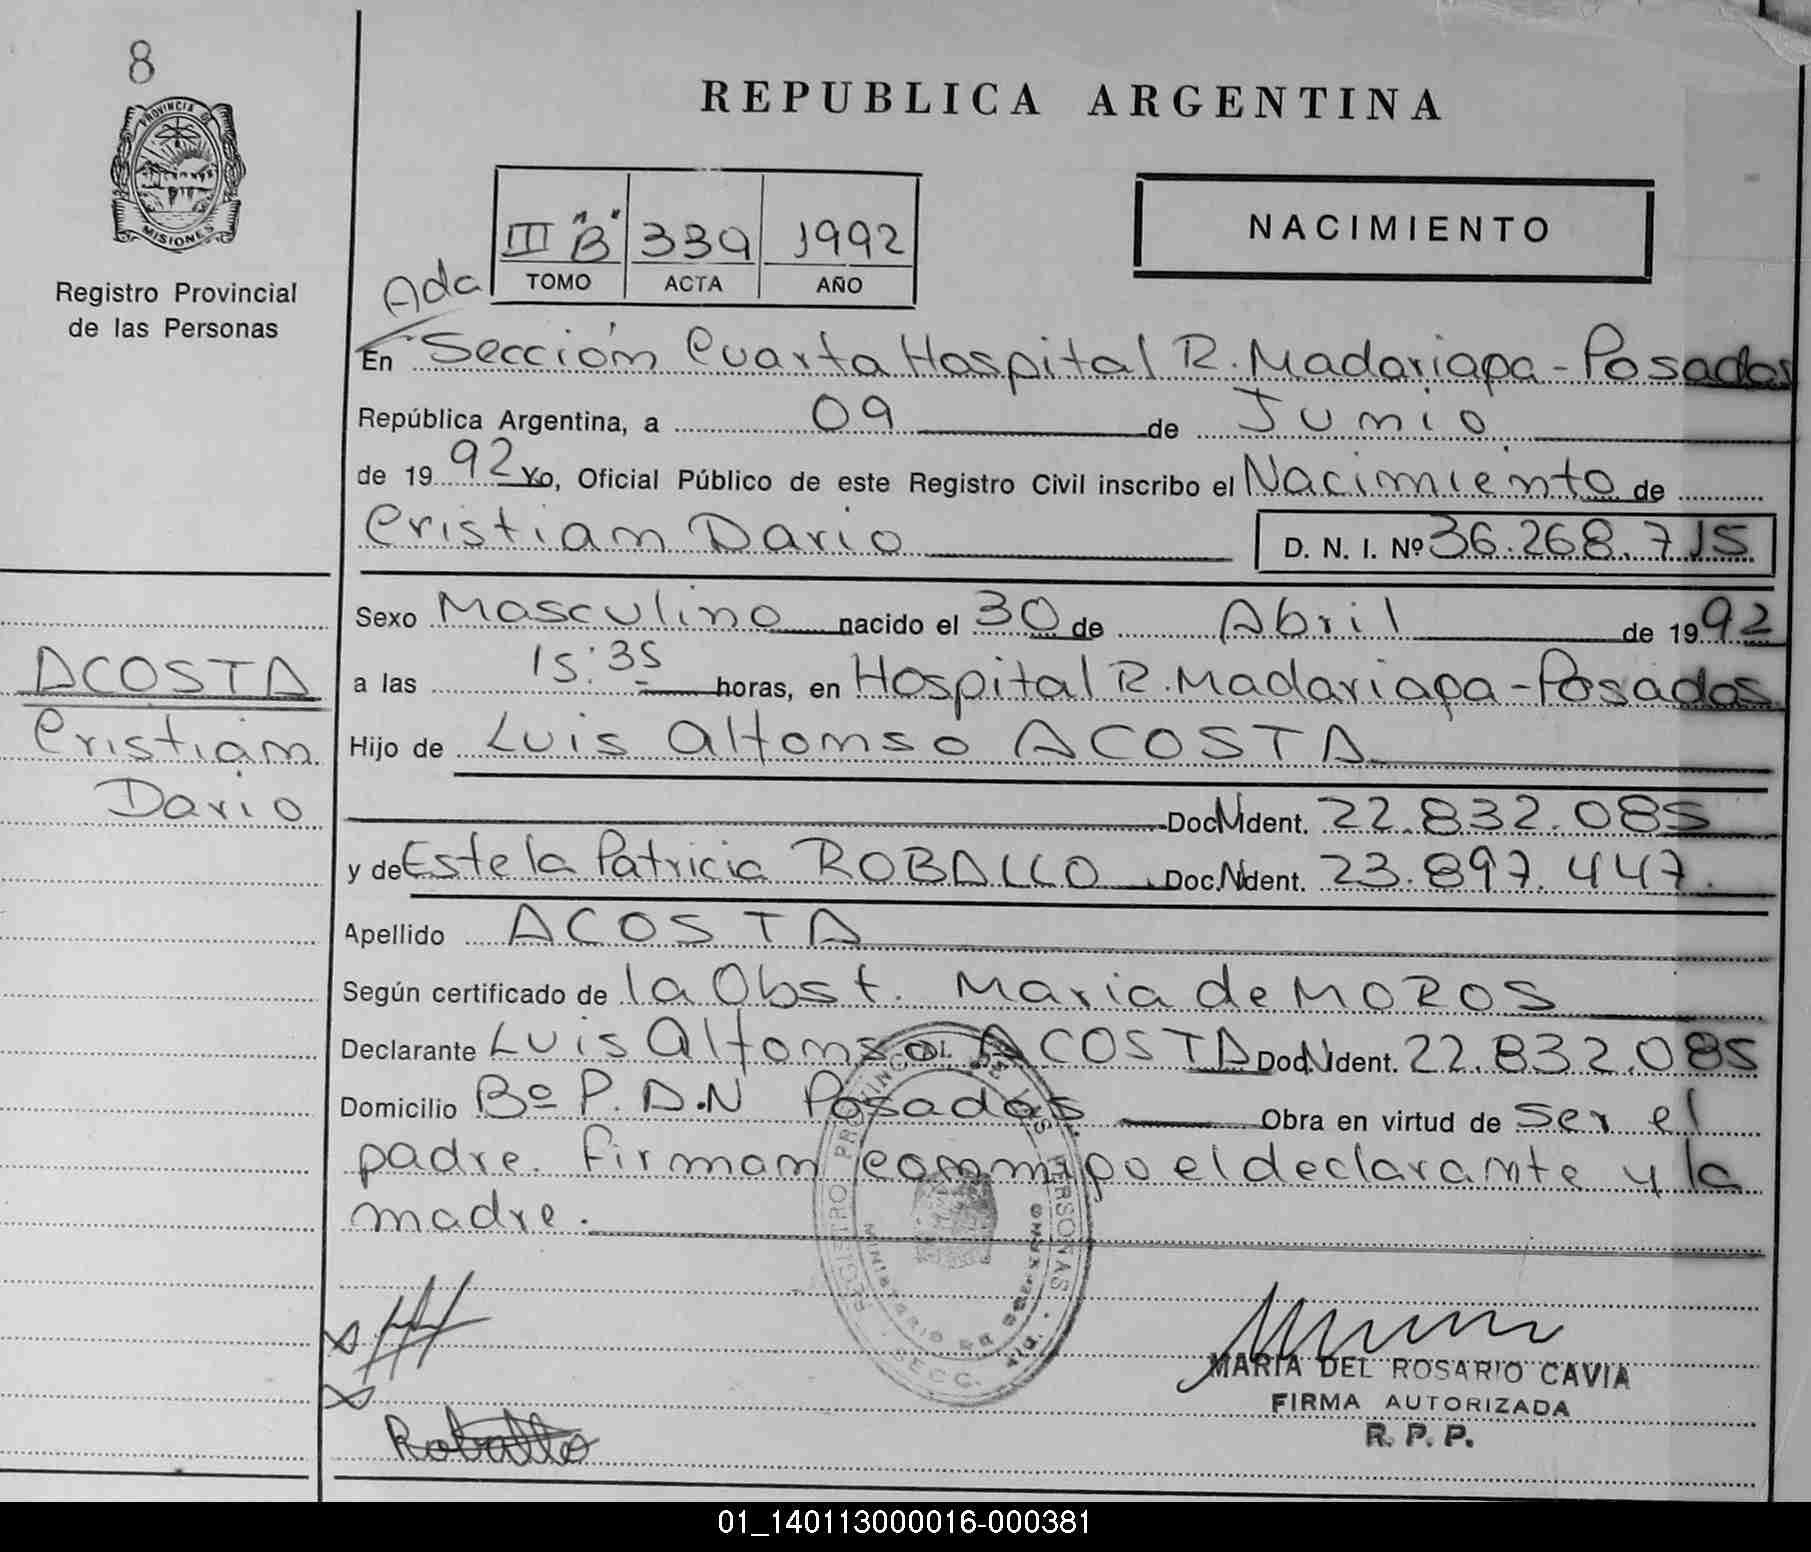 8
PROVINCIA DE
MISIONES
Registro Provincial
de las Personas
REPUBLICA ARGENTINA
NACIMIENTO
III "B" 339 1992
TOMO ACTA AÑO
Ada
En Sección Cuarta Hospital R. Madariaga - Posadas
República Argentina, a 09 de Junio
de 1992 Yo, Oficial Público de este Registro Civil inscribo el Nacimiento de
Cristian Dario D. N. I. Nº 36.268.715
Sexo Masculino nacido el 30 de Abril de 1992
a las 15:35 horas, en Hospital R. Madariaga - Posadas
Hijo de Luis Alfonso ACOSTA
Doc. N Ident. 22.832.085
y de Estela Patricia ROBALLO Doc. N Ident. 23.897.447.
Apellido ACOSTA
Según certificado de la Obst. Maria de MOROS
Declarante Luis Alfonso ACOSTA Doc. N Ident. 22.832.085
Domicilio Bº P.A.N Posadas Obra en virtud de ser el
padre. Firman conmigo el declarante y la
madre.
ACOSTA
Cristian
Dario
REGISTRO PROVINCIAL DE LAS PERSONAS
MINISTERIO DE GOBIERNO
SECC.
Roballo
MARIA DEL ROSARIO CAVIA
FIRMA AUTORIZADA
R. P. P.
01_140113000016-000381